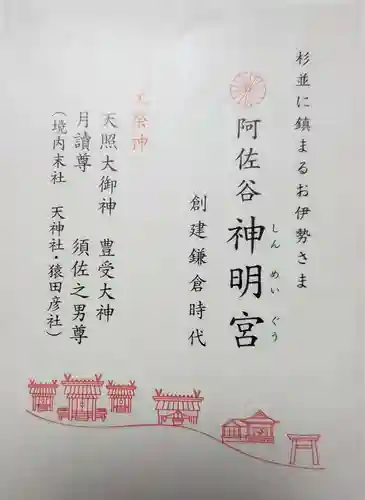 杉並に鎮まるお伊勢さま
阿佐谷神明宮
しんめいぐう
創建鎌倉時代
天照大御神 豊受大神
月讀尊 須佐之男尊
(境内末社 天神社・猿田彦社)